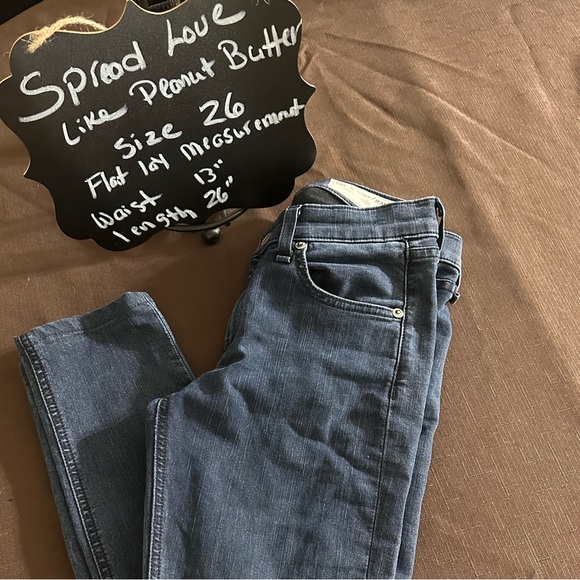 Spread Love
Like Peanut Butter
Size 26
Flat lay measurement
Waist 13"
length 26"